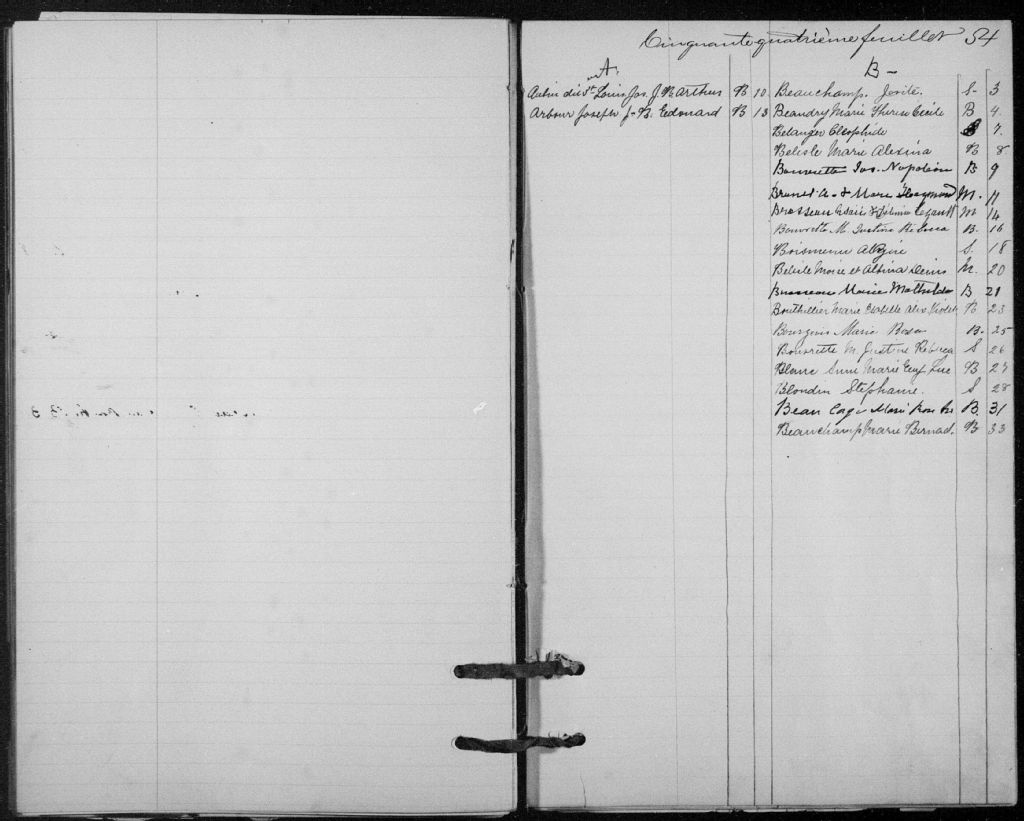 Cinquante quatrième feuillet 54
A.
Aubin dit St Louis Jos. J. Bte Arthur B 10
Arbour Joseph J-B. Edouard B 13
B-
Beauchamp. Josite. S- 3
Beaudry Marie Therese Cecile B 4.
Belanger Cleophide B 7.
Belisle Marie Alexina B 8
Bourrette Jos. Napoléon B 9
Brunet A. & Marie Raymond M. 11
Brasseau & Legault M 14
Bourrette M. Justine Rebecca B. 16
Boismenu Alzire S. 18
Belisle Moise et Albina Denis M. 20
Brasseau Marie Mathilda B 21
Bouthillier Marie Alex. Violet B 23
Bourgois Marie Rosa B. 25
Bourrette M. Justine Rebecca S 26
Blanc Anne Marie Luc B 27
Blondin Stephanie. S 28
Beau Marie Rose B. 31
Beauchamp Marie Bernad. B 33